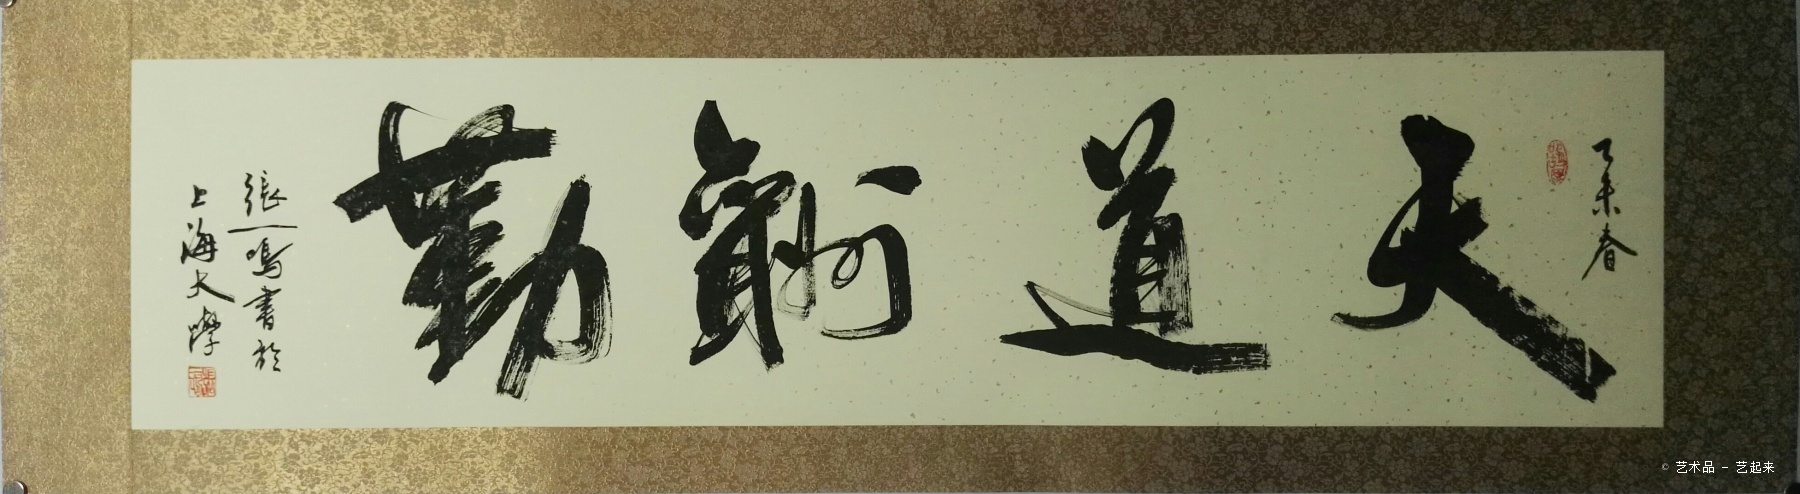 乙未春
天道酬勤
張一鳴書於
上海大學
© 艺术品 - 艺起来